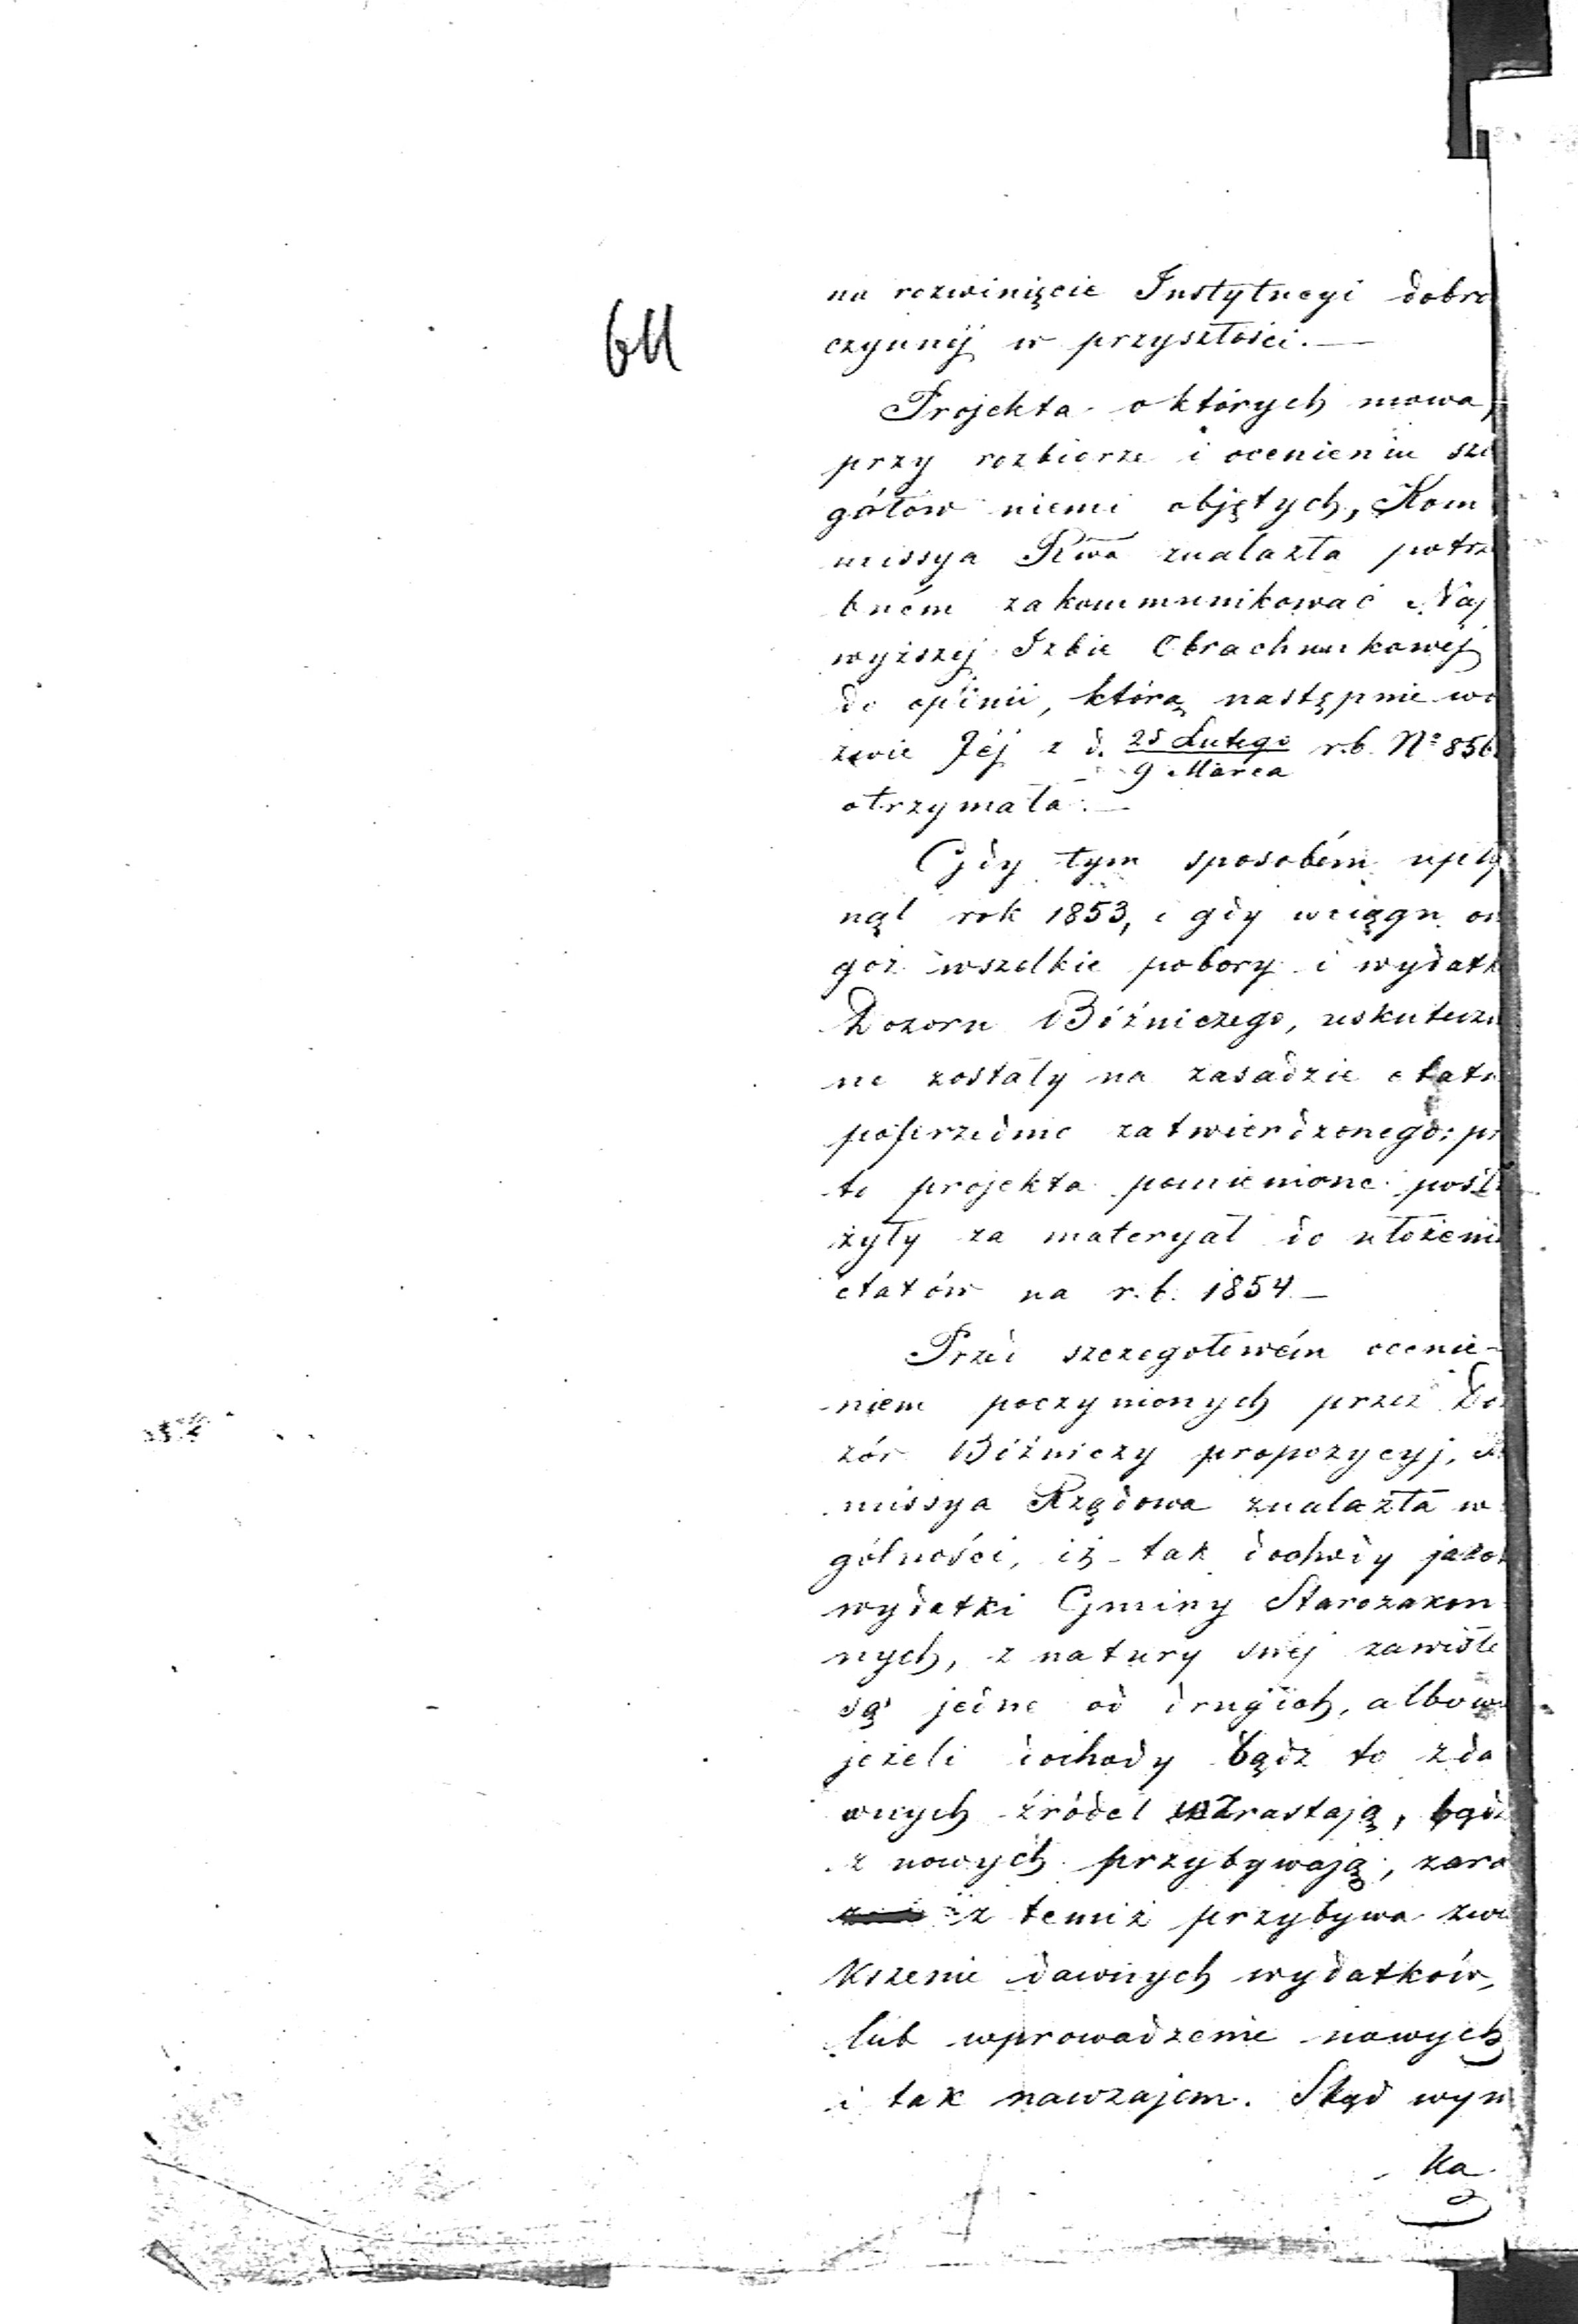 611
na rozwinięcie Instytucyi dobro
czynnéj w przyszłości. —
Projekta o których mowa,
przy rozbiorze i ocenieniu szc
gółów niemi objętych, Kom
missya Rwa znalazła potrz
bném zakommunikować Naj
wyższéj Izbie Obrachunkowéj
do opinii, którą następnie wo
zwie Jéj z d. 25 Lutego / 9 Marca r.b. Nº 856
otrzymała. —
Gdy tym sposobém upły
nął rok 1853, i gdy wciągu on
goż wszelkie pobory i wydatk
Dozoru Bóżniczego, uskuteczn
ne zostały na zasadzie etatu
poprzednio zatwierdzonego; prz
to projekta pomienione posłu
żyły za materyał do ułożenia
etatów na r.b. 1854. —
Przed szczegółowém ocenie-
niem poczynionych przez Do
zór Bóżniczy propozycyj,
missya Rządowa znalazła w
gólności, iż tak dochody jako
wydatki Gminy Starozakon
nych, z natury swéj zawisłe
są jedne od drugich, albow
jeżeli dochody bądz to z da
wnych źródeł wzrastają, bądz
z nowych przybywają, zara
z temiż przybywa zwię
kszenie dawnych wydatków,
lub wprowadzenie nowych
i tak nawzajem. Stąd wyni
ka